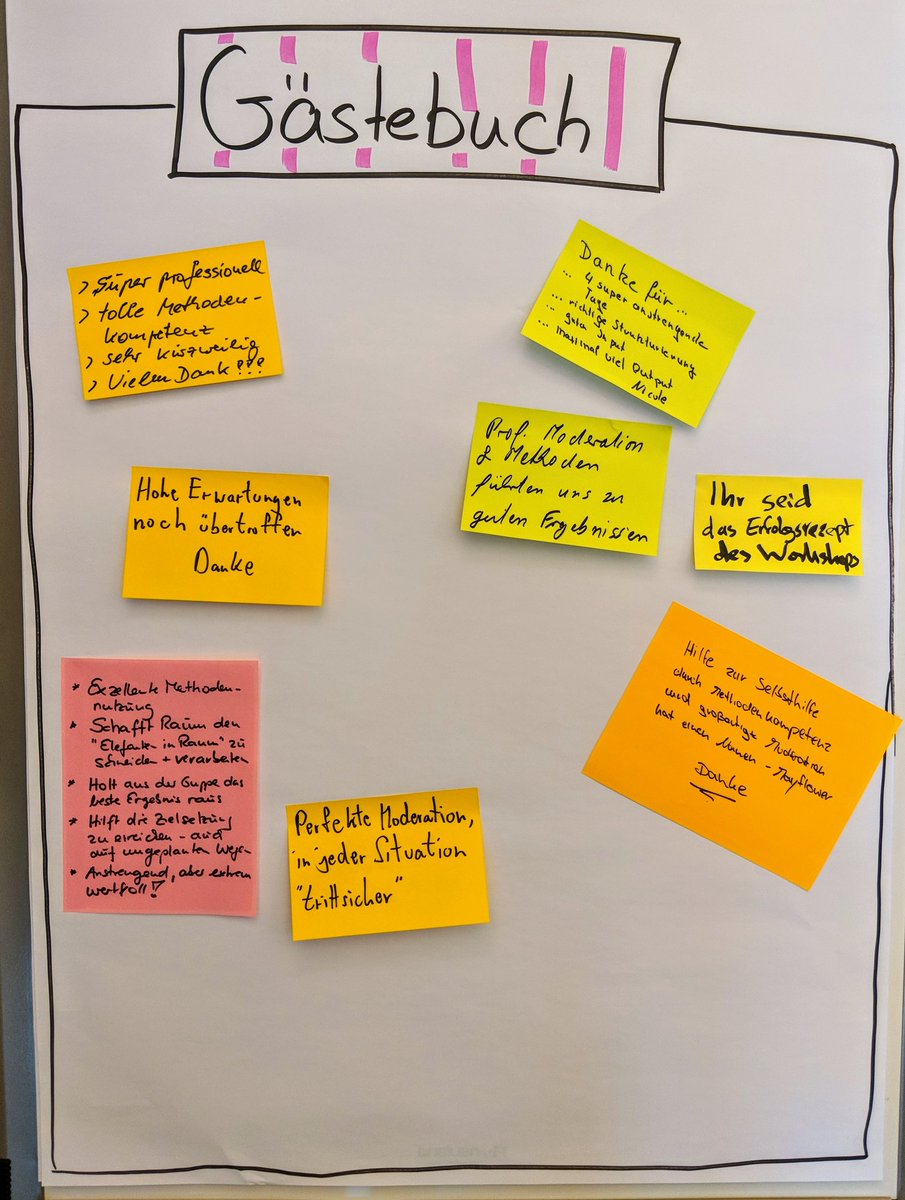 Gästebuch
> Super professionell
> tolle Methoden-
kompetenz
> sehr kurzweilig
> Vielen Dank!!!
Danke für...
... 4 super anstrengende
Tage
... richtige Strukturierung
... guten Input
... maximal viel Output
Nicole
Prof. Moderation
& Methoden
führten uns zu
guten Ergebnissen
Ihr seid
das Erfolgsrezept
des Workshops
Hohe Erwartungen
noch übertroffen
Danke
* Exzellente Methoden-
nutzung
* Schafft Raum den
"Elefanten im Raum" zu
schneiden + verarbeiten
* Holt aus der Guppe das
beste Ergebnis raus
* Hilft die Zielsetzung
zu erreichen - auch
auf ungeplanten Wegen
* Anstrengend, aber extrem
wertfoll!
Hilfe zur Selbsthilfe
durch Methodenkompetenz
und großartige Moderation
hat einen Namen - Mayflower
Danke
Perfekte Moderation,
in jeder Situation
"trittsicher"